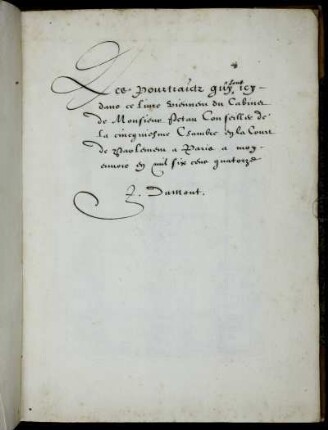 Les pourtraictz quy sont icy
dans ce livre viennen du Cabinet
de Monsieur Petau Conseiller de
la cincquiesme Chambre en la Court
de Parlement a Paris a moy
envoié en mil six cens quatorze
Damont.